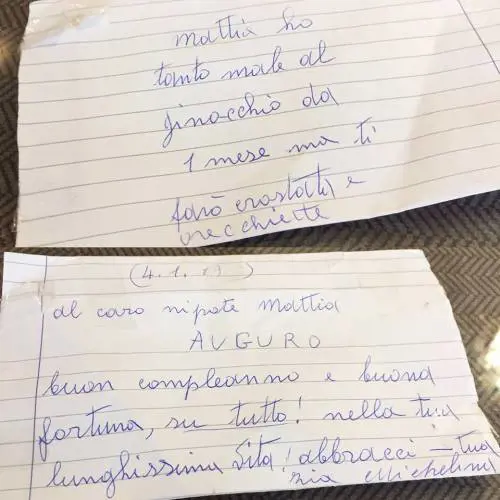 mattia ho
tanto male al
ginocchio da
1 mese ma ti
farò crostata e
orecchiette
(4.1.19)
al caro nipote mattia
AUGURO
buon compleanno e buona
fortuna, su tutto! nella tua
lunghissima Vita! abbracci - tua
zia Michelina